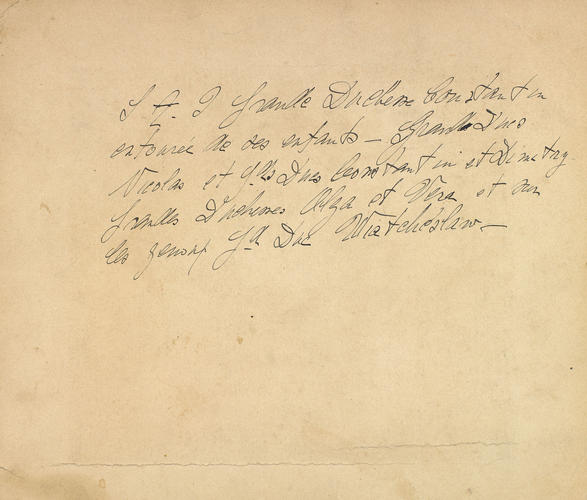 S A I Grande Duchesse Constantin
entourée de ses enfants — Grands Ducs
Nicolas et Gds Ducs Constantin et Dimitry
Grandes Duchesses Olga et Vera et sur
les genoux Gd Duc Wiatcheslaw —